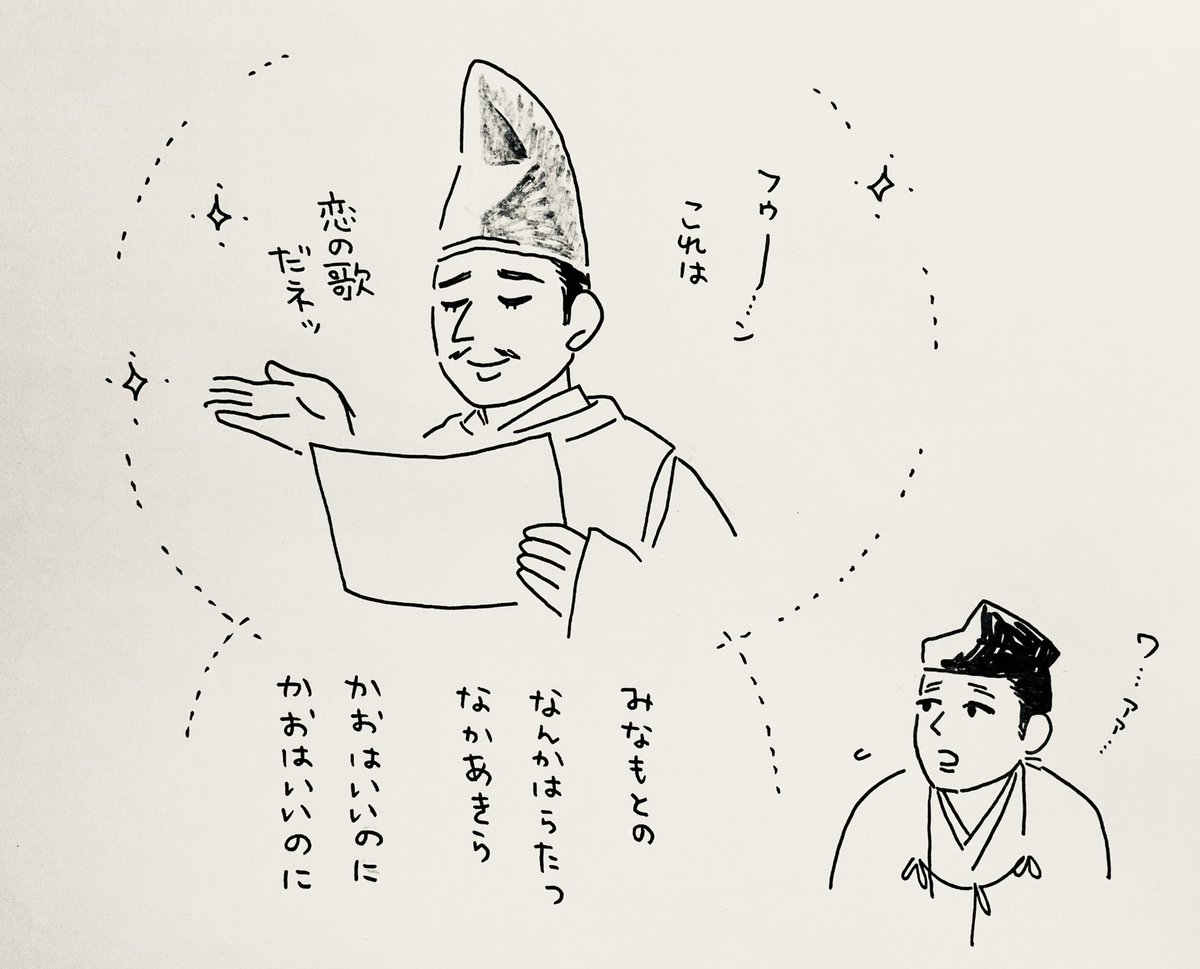 フゥー…ン
これは
恋の歌
だネッ
みなもとの
なんかはらたつ
なかあきら
かおはいいのに
かおはいいのに
ワ…ァァ…